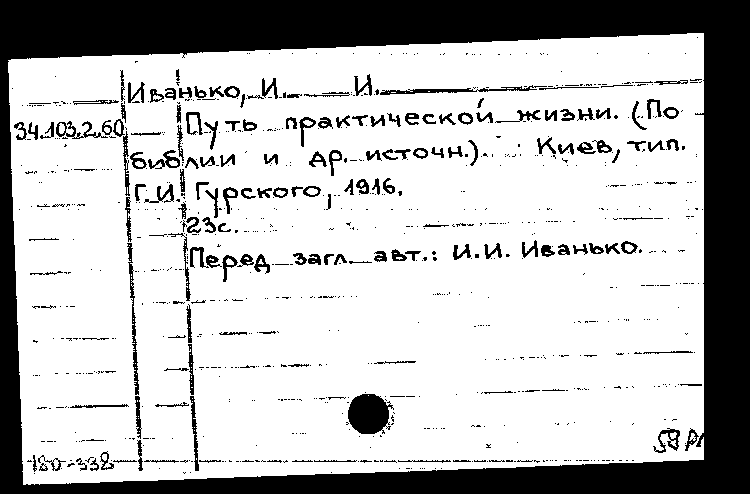 Иванько, И. И.
34.103.2.60 Путь практической жизни. (По
библии и др. источн.). Киев, тип.
Г.И. Гурского, 1916.
23с.
Перед загл. авт.: И.И. Иванько.
180-338